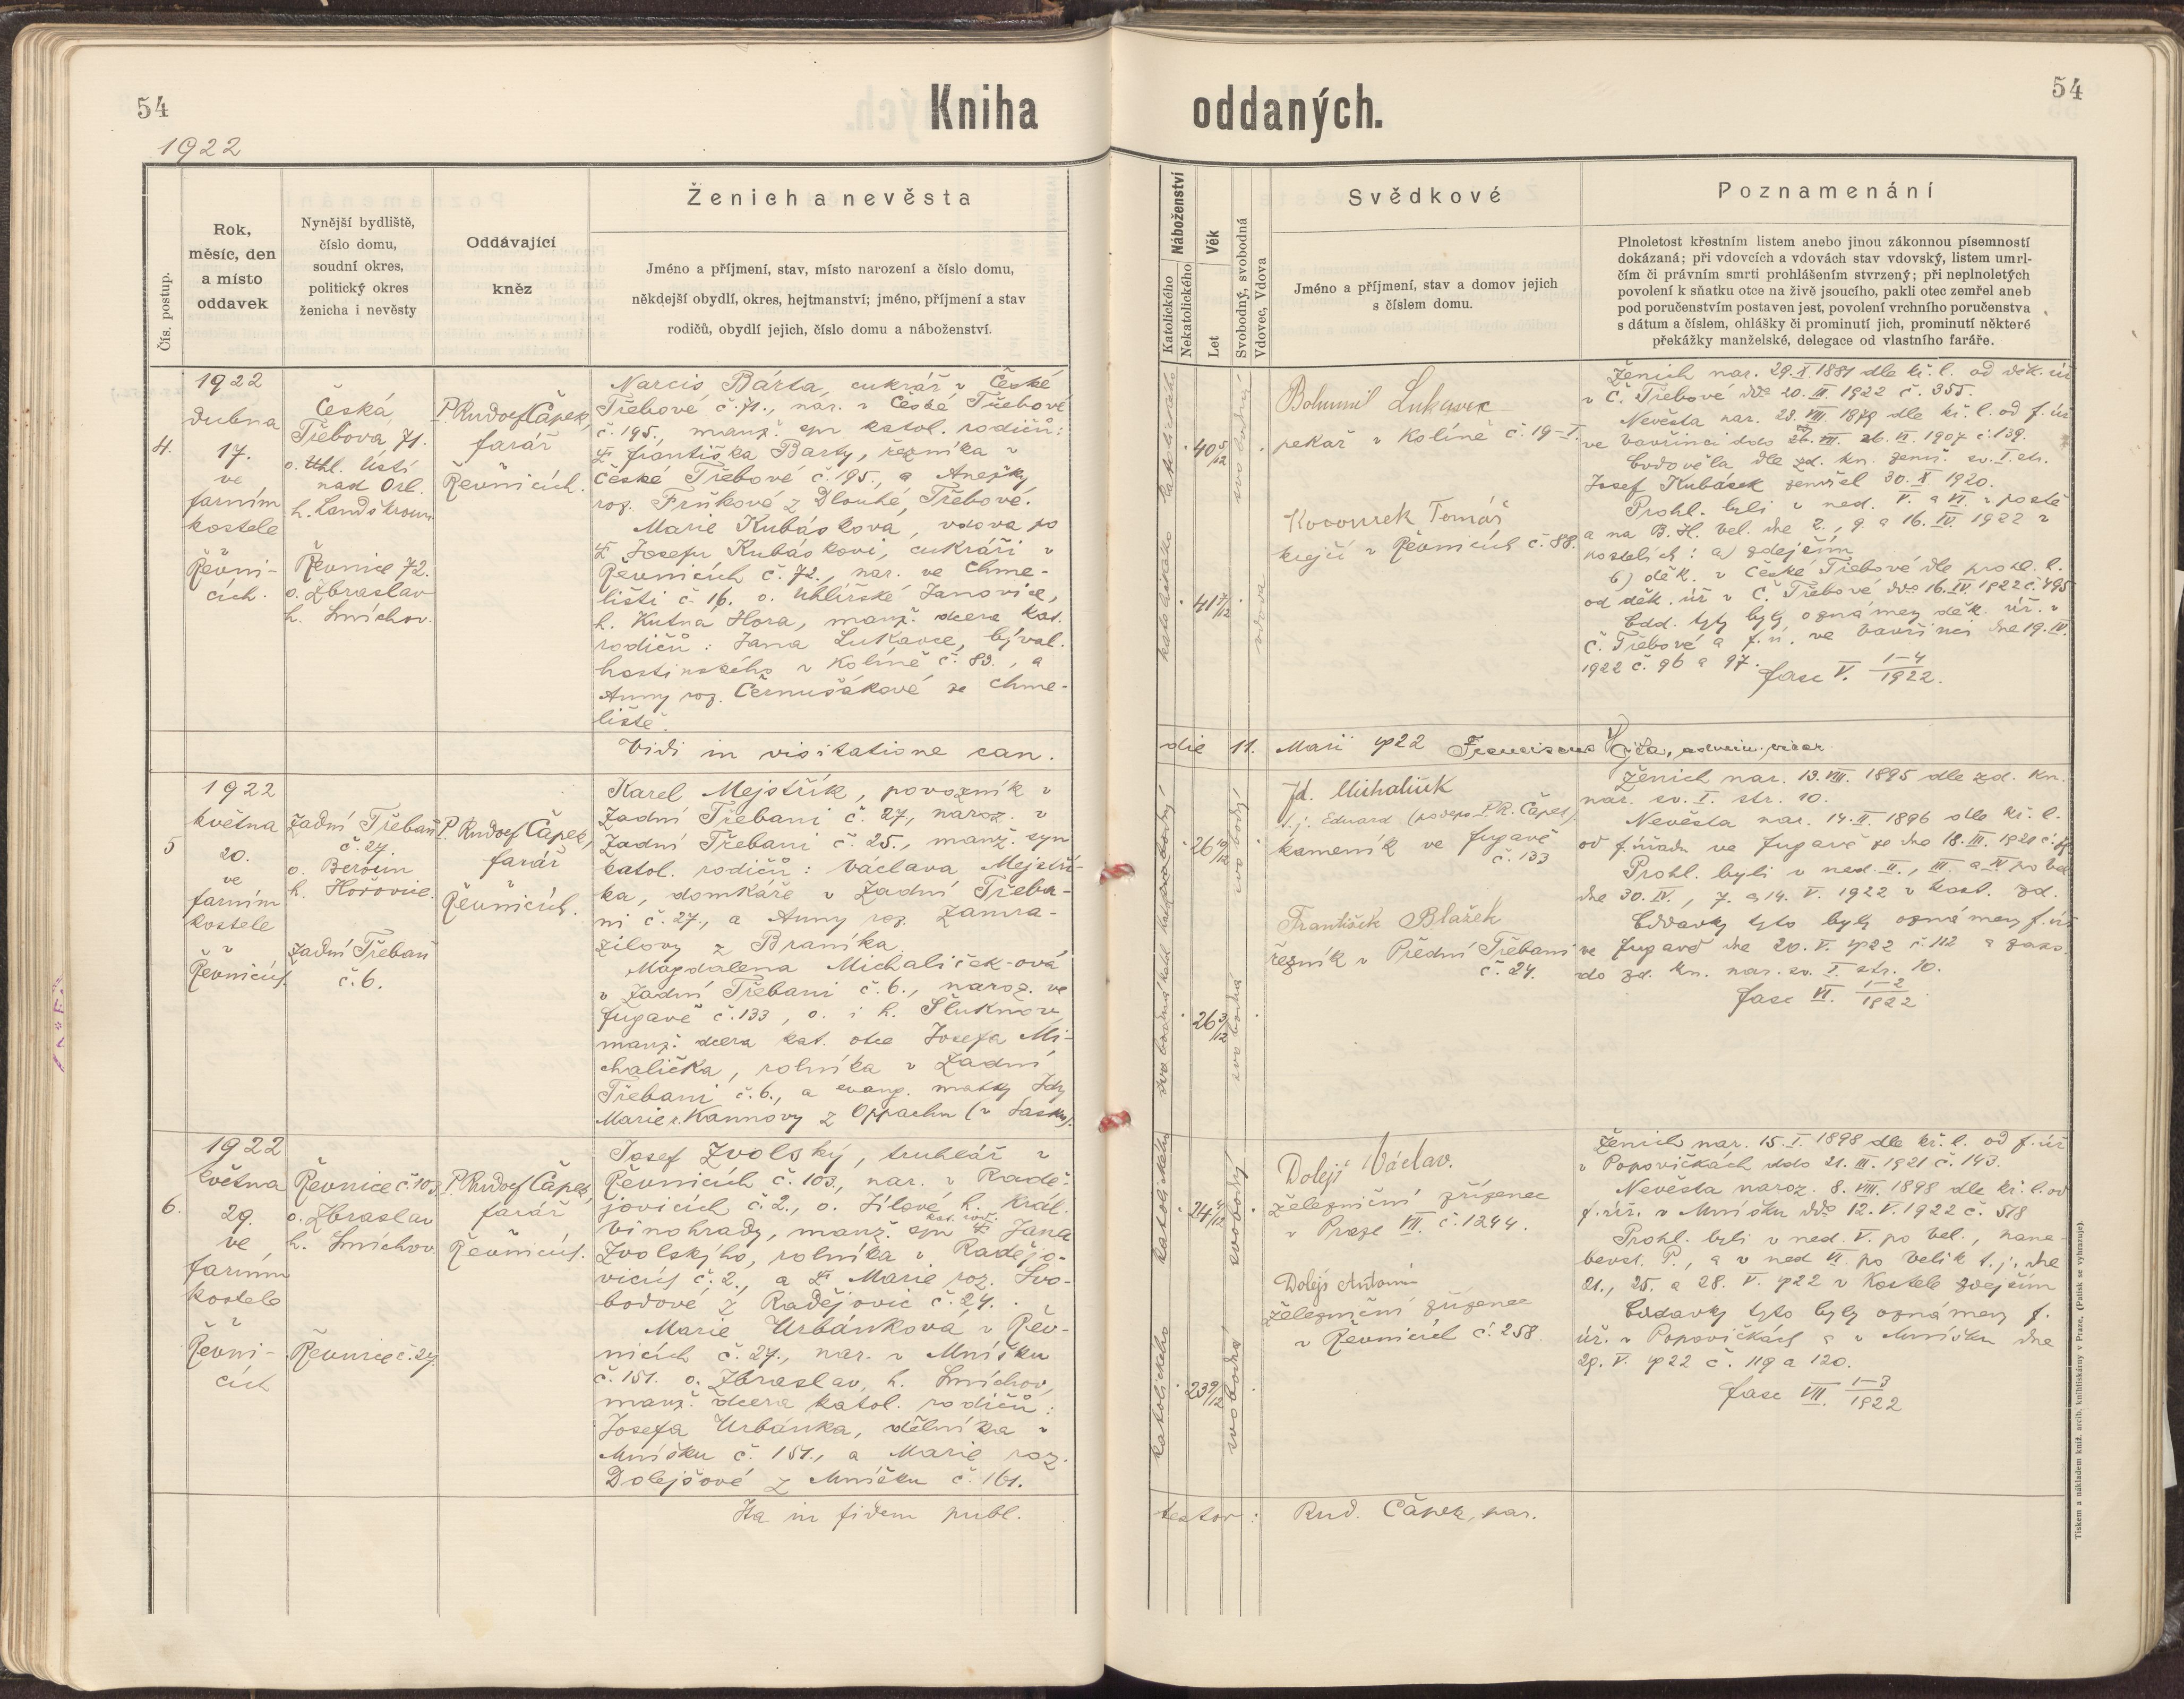 54
Kniha
oddaných.
54
1922
Čís. postup.
Rok,
měsíc, den
a místo
oddavek
Nynější bydliště,
číslo domu,
soudní okres,
politický okres
ženicha i nevěsty
Oddávající
kněz
Ženich a nevěsta
Jméno a příjmení, stav, místo narození a číslo domu,
někdejší obydlí, okres, hejtmanství; jméno, příjmení a stav
rodičů, obydlí jejich, číslo domu a náboženství.
Náboženství
Katolického
Nekatolického
Věk
Let
Svobodný, svobodná
Vdovec, Vdova
Svědkové
Jméno a příjmení, stav a domov jejich
s číslem domu.
Poznamenání
Plnoletost křestním listem anebo jinou zákonnou písemností
dokázaná; při vdovcích a vdovách stav vdovský, listem umrl-
čím či právním smrti prohlášením stvrzený; při neplnoletých
povolení k sňatku otce na živě jsoucího, pakli otec zemřel aneb
pod poručenstvím postaven jest, povolení vrchního poručenstva
s dátum a číslem, ohlášky či prominutí jich, prominutí některé
překážky manželské, delegace od vlastního faráře.
4.
1922
dubna
17.
ve
farním
kostele
v
Řevni-
cích.
Česká
Třebová 71.
o. Ústí
nad Orl.
h. Landškroun.
Řevnice 72.
o. Zbraslav
h. Smíchov.
P. Rudolf Čápek,
farář
v
Řevnicích.
Narcis Bárta, cukrář v České
Třebové č. 71., nar. v České Třebové
č. 195., manž. syn katol. rodičů:
Františka Bárty, řezníka v
České Třebové č. 195., a Anežky
roz. z Dlouhé Třebové.
Marie Kubásková, vdova po
Josefu Kubáskovi, cukráři v
Řevnicích č. 72., nar. ve Chme-
lišti č. 16. o. Uhlířské Janovice,
h. Kutná Hora, manž. dcera kat.
rodičů: Jana Lukavce, býval.
hostinského v Kolíně č. 83., a
Anny roz. Černušákové ze Chme-
liště.
katolického
40 5/12
svobodný
katolického
41 7/12
vdova
Bohumil Lukavec
pekař v Kolíně č. 19-I.
Kocourek Tomáš
krejčí v Řevnicích č. 88.
Ženich nar. 29. X. 1881 dle kř. l. od děk. úř.
v Č. Třebové ddo 20. III. 1922 č. 355.
Nevěsta nar. 23. VIII. 1879 dle kř. l. od f. úř.
ve Vavřinci ddo 26. VI. 1907 č. 139.
Ovdověla dle zd. kn. zemř. sv. I. str.
Josef Kubásek zemřel 30. X 1920.
Prohl. byli v ned. V. a VI. v postě
a na B. H. Vel. dne 2., 9. a 16. IV. 1922 v
kostelích: a) zdejším
b) děk. v České Třebové dle prohl. l.
od děk. úř. v Č. Třebové ddo 16. IV. 1922 č. 495
Odd. tyto byly oznámeny děk. úř. v
Č. Třebové a f. ú. ve Vavřinci dne 19. IV.
1922 č. 96 a 97.
fasc V. 1-4/1922.
Vidi in visitatione can.
die 11. Maii 1922 Franciscus
5
1922
května
20.
ve
farním
kostele
v
Řevnicích.
Zadní Třebaň
č. 27.
o. Beroun
h. Hořovice.
Zadní Třebaň
č. 6.
P. Rudolf Čápek,
farář
v
Řevnicích.
Karel Mejstřík, povozník v
Zadní Třebani č. 27, naroz. v
Zadní Třebani č. 25., manž. syn
katol. rodičů: Václava Mejstří-
ka, domkáře v Zadní Třeba-
ni č. 27., a Anny roz. Zamra-
zilovy z Braníka.
Magdalena Michaliček-ová
v Zadní Třebani č. 6., naroz. ve
Fugavě č. 133, o. i h. Šluknov,
manž. dcera kat. otce Josefa Mi-
chalička, rolníka v Zadní
Třebani č. 6., a evang. matky Idy
Marie r. Kannovy z Oppachu (v Sasku).
26 10/12
svobodný
26 3/12
svobodná
Ed. Michaliček
t. j. Eduard (podeps. P. R. Čápek)
kameník ve Fugavě
č. 133
František Blažek
řezník v Přední Třebani
č. 24.
Ženich nar. 13. VIII. 1895 dle zd. kn.
nar. sv. I. str. 10.
Nevěsta nar. 14. II. 1896 dle kř. l.
od f. úřadu ve Fugavě ze dne 18. III.
Prohl. byli v ned. II., III. a IV po Vel.
dne 30. IV., 7. a 14. V. 1922 v kost. zd.
Oddavky tyto byly oznámeny f. úř.
ve Fugavě dne 20. V. 1922 č. 112 a zdo
do zd. kn. nar. sv. I. str. 10.
fasc VI. 1-2/1922
6.
1922
května
29.
ve
farním
kostele
v
Řevni-
cích
Řevnice č. 103
o. Zbraslav
h. Smíchov
Řevnice č. 27.
P. Rudolf Čápek,
farář
v
Řevnicích.
Josef Zvolský, truhlář v
Řevnicích č. 103., nar. v Radě-
jovicích č. 2., o. Jílové, h. Král.
Vinohrady, manž. syn kat. rod. Jana
Zvolského, rolníka v Radějo-
vicích č. 2., a Marie roz. Svo-
bodové z Radějovic č. 24.
Marie Urbánková v Řev-
nicích č. 27., nar. v Mníšku
č. 151. o. Zbraslav, h. Smíchov,
manž. dcera katol. rodičů:
Josefa Urbánka, dělníka v
Mníšku č. 151., a Marie roz.
Dolejšové z Mníšku č. 161.
katolického
24 4/12
svobodný
katolického
23 9/12
svobodná
Dolejš Václav.
železniční zřízenec
v Praze VII. č. 1244.
Dolejš Antonín
železniční zřízenec
v Řevnicích č. 258.
Ženich nar. 15. I. 1898 dle kř. l. od f. úř.
v Popovičkách ddo 21. III. 1921 č. 143.
Nevěsta naroz. 8. VIII. 1898 dle kř. l. od
f. úř. v Mníšku ddo 12. V. 1922 č. 518
Prohl. byli v ned. V. po Vel., nane-
bevst. P., a v ned VI. po Velik t. j. dne
21., 25. a 28. V. 1922 v Kostele zdejším
Oddavky tyto byly oznámeny f.
úř. v Popovičkách a v Mníšku dne
29. V. 1922 č. 119 a 120.
fasc VII. 1-3/1922
Ita in fidem publ.
testor: Rud. Čápek, par.
Tiskem a nákladem kníž. arcib. knihtiskárny v Praze. (Patisk se vyhrazuje).